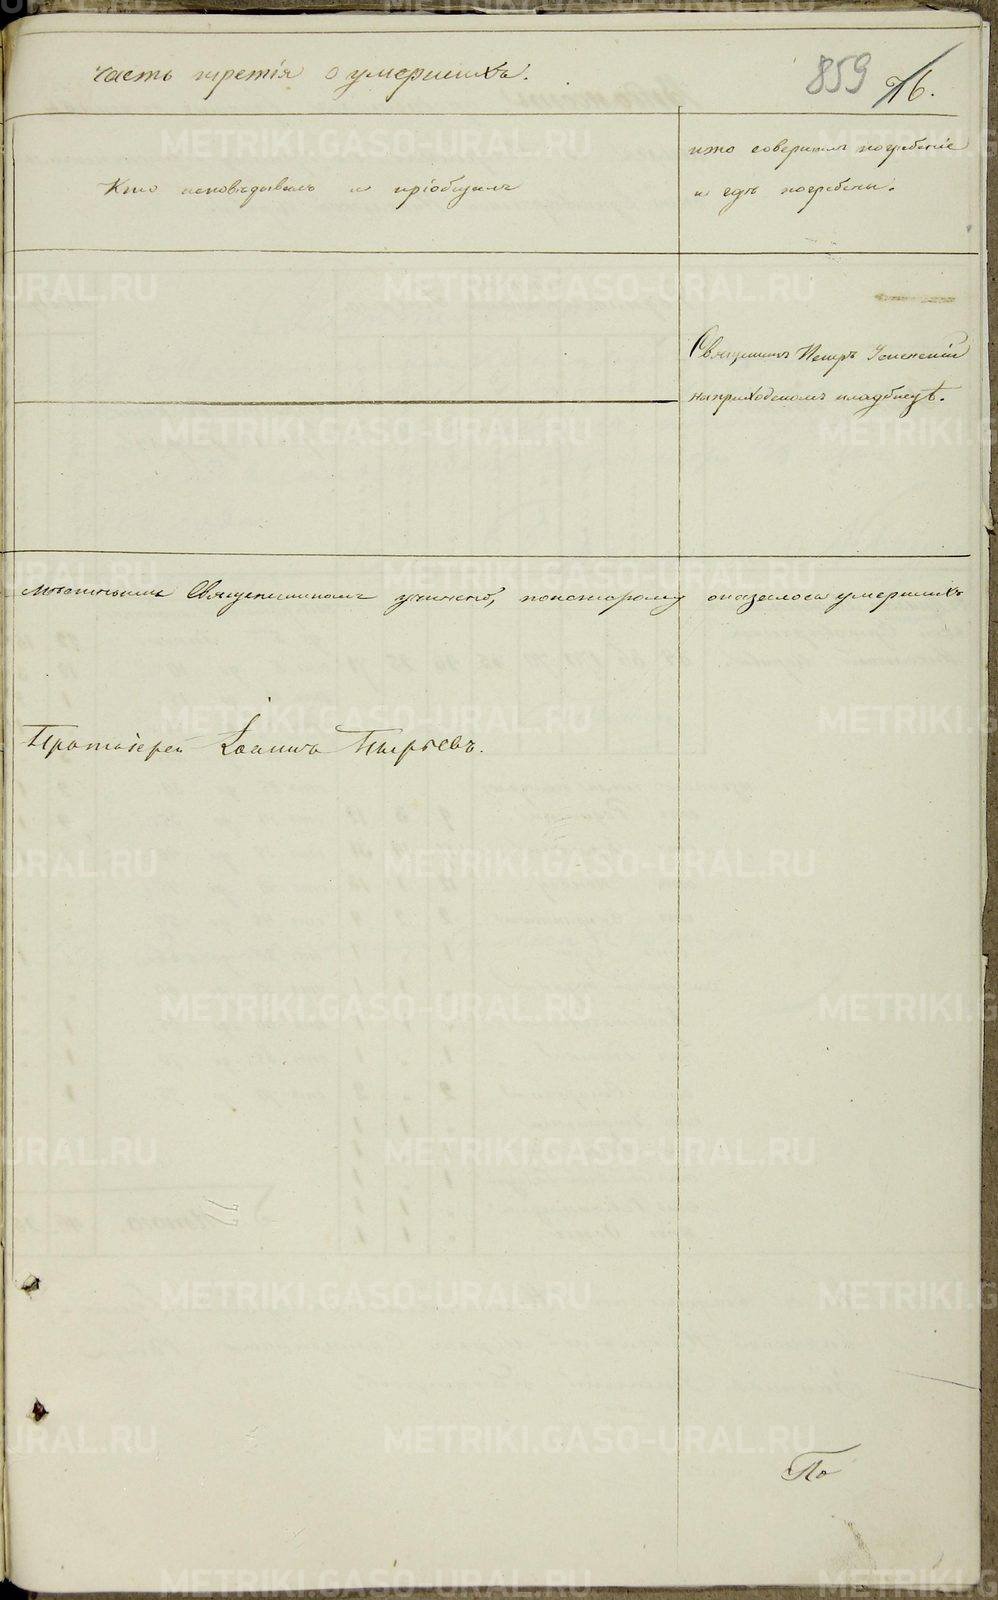 часть третія о умершихъ.
859 76.
Кто исповѣдывалъ и пріобщалъ
кто совершилъ погребеніе
и гдѣ погребены.
Священникъ Петръ Успенскій
на приходскомъ кладбищѣ.
мѣстнымъ Священникомъ учинено, по которому оказалось умершихъ
Протоіерей Іоаннъ Пырьевъ.
По
METRIKI.GASO-URAL.RU